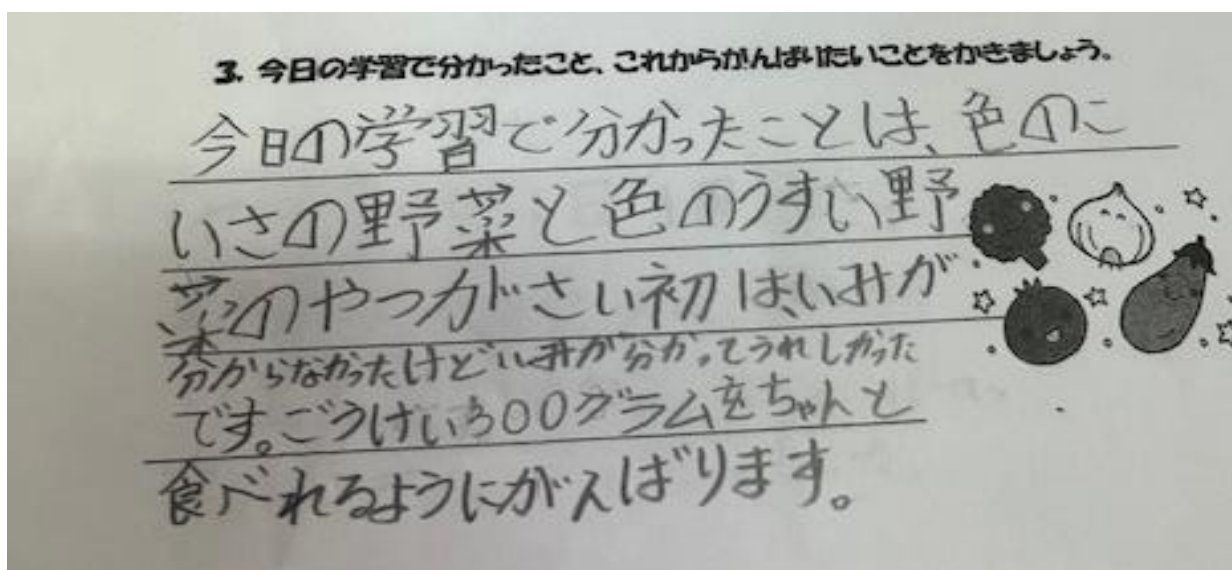 3. 今日の学習で分かったこと、これからがんばりたいことをかきましょう。
今日の学習で分かったことは、色のこ
いさの野菜と色のうすい野
菜のやつがさい初は、いみが
分からなかったけどいみが分かってうれしかった
です。ごうけい300グラムをちゃんと
食べれるようにがんばります。